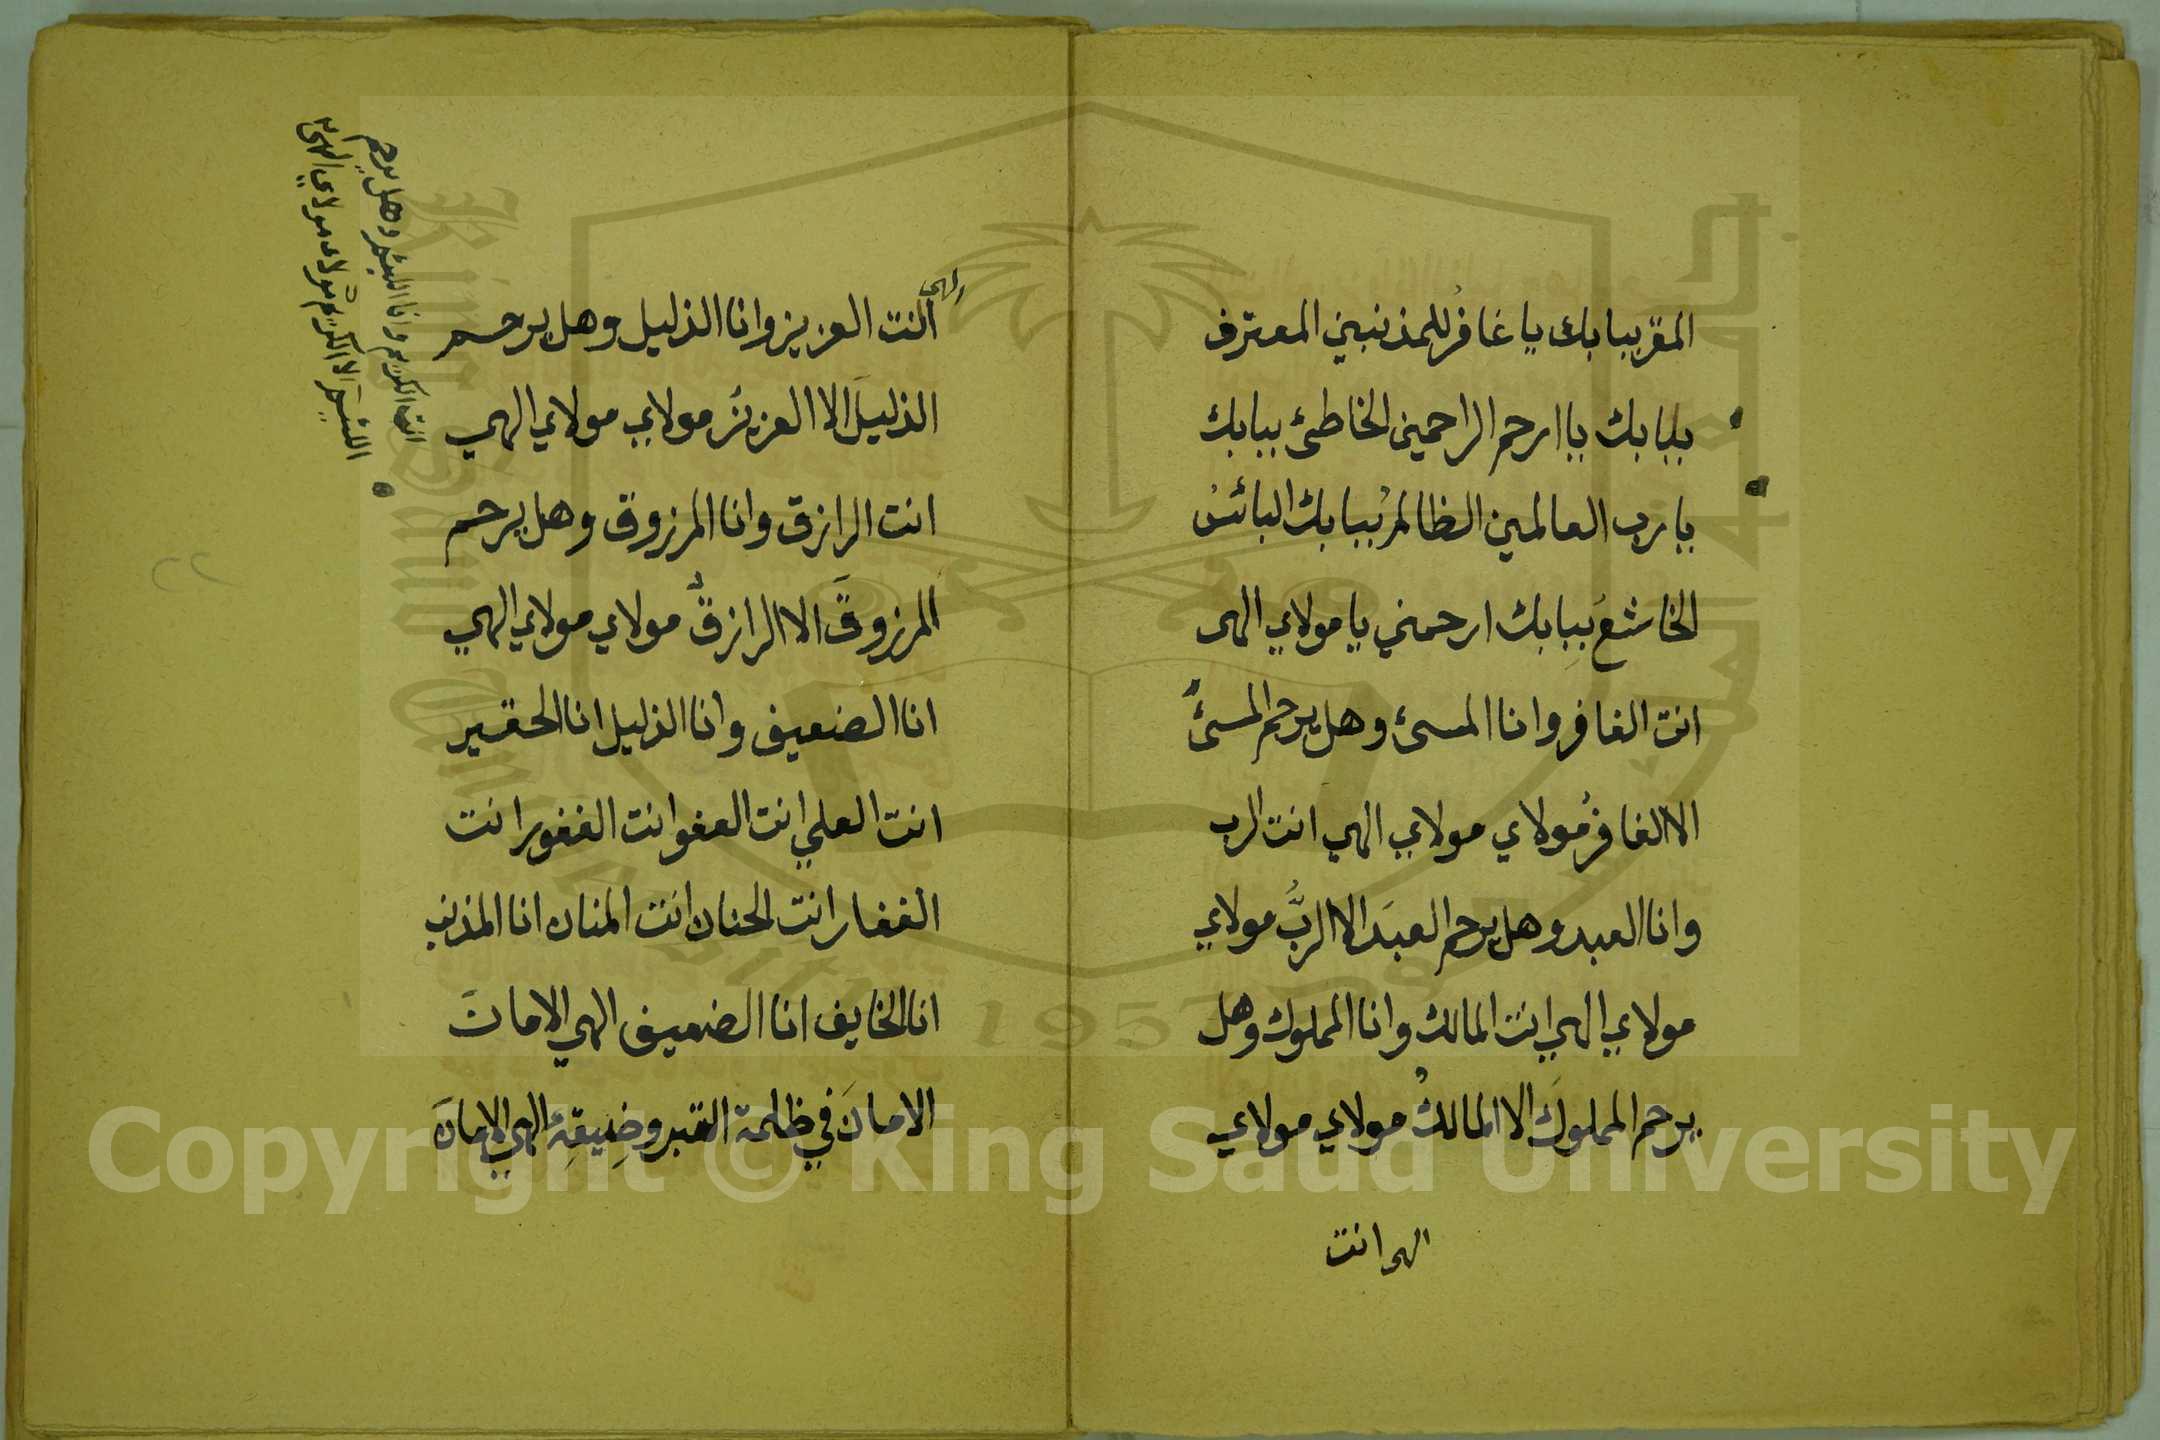 المقر ببابك يا غافرُ للمذنبين المعترف
ببابك يا ارحم الراحمين الخاطئ ببابك
يا رب العالمين الظالمُ ببابك البائسُ
الخاشعُ ببِابك ارحمني يا مولاي الهى
انت الغافر وانا المسئ وهل يرحم المسئَ
الا الغافرُ مولاي مولاي الهي انت الرب
وانا العبد وهل يرحم العبَد الا الربُّ مولاي
مولاي الهي انت المالك وانا المملوك وهل
يرحم المملوكَ الا المالكُ مولاي مولاي
الهى انت
الهى
انت العزيز وانا الذليل وهل يرحم
الذليلَ الا العزيزُ مولاي مولاي الهي
انت الرازق وانا المرزوق وهل يرحم
المرزوقَ الا الرازقُ مولاي مولاي الهي
انا الضعيف وانا الذليل انا الحقير
انت العلي انت العفو انت الغفور انت
الغفار انت الحنان انت المنان انا المذنب
انا الخايف انا الضعيف الهي الامانَ
الامانَ في ظلمة القبر وضِيقِهِ الهي الامانَ
انت الكريم وانا اللئيم وهل يرحم
اللئيمَ الا الكريمُ مولاي مولاي الهي
٢٢
King Saud University
1957
Copyright © King Saud University